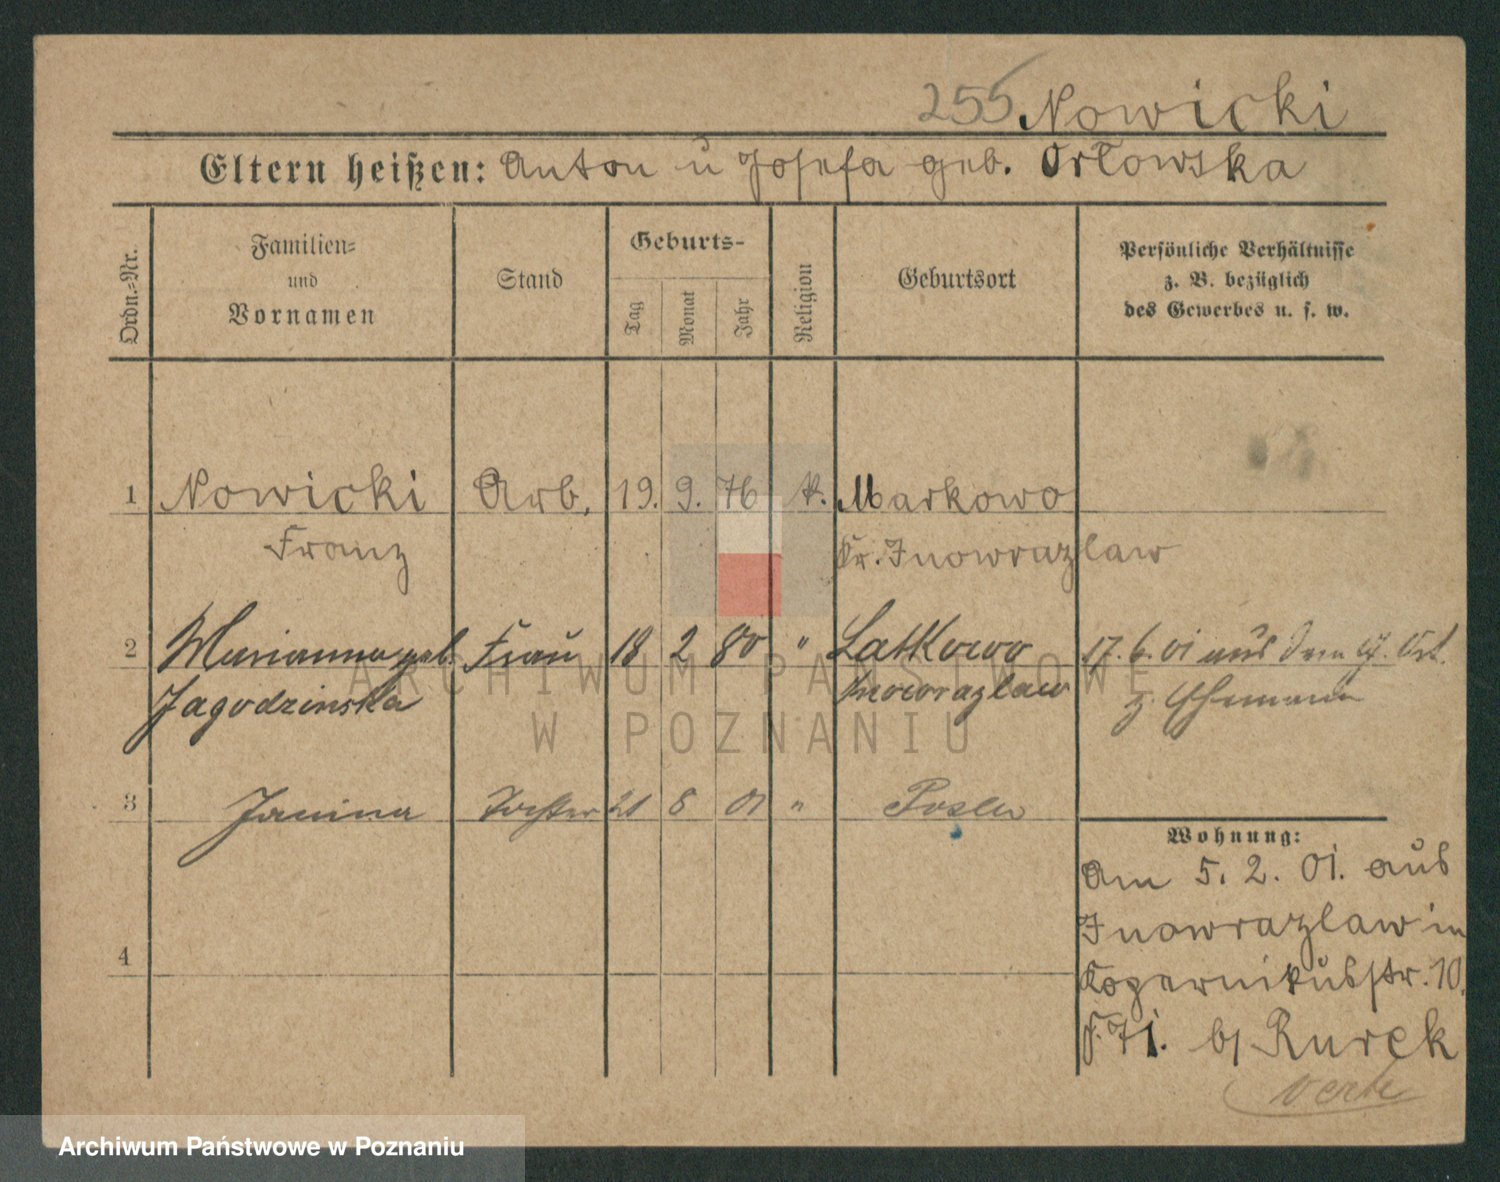 255 Nowicki
Eltern heißen: Anton u Josefa geb. Orłowska
Ordn.-Nr.
Familien-
und
Vornamen
Stand
Geburts-
Tag
Monat
Jahr
Religion
Geburtsort
Persönliche Verhältnisse
z. B. bezüglich
des Gewerbes u. s. w.
1 Nowicki Arb. 19. 9. 76 k. Markowo
Franz Kr. Inowrazlaw
2 Marianna geb. Frau 18 2 80 " Latkowo 17. 6. 01 aus
Jagodzinska Inowrazlaw z. Ehemann
3 Janina Tochter 21 8 01 " Posen
Wohnung:
Am 5. 2. 01. aus
Inowrazlaw in
4
Kopernikusstr. 10.
b/ Rurek
ARCHIWUM PAŃSTWOWE
W POZNANIU
Archiwum Państwowe w Poznaniu